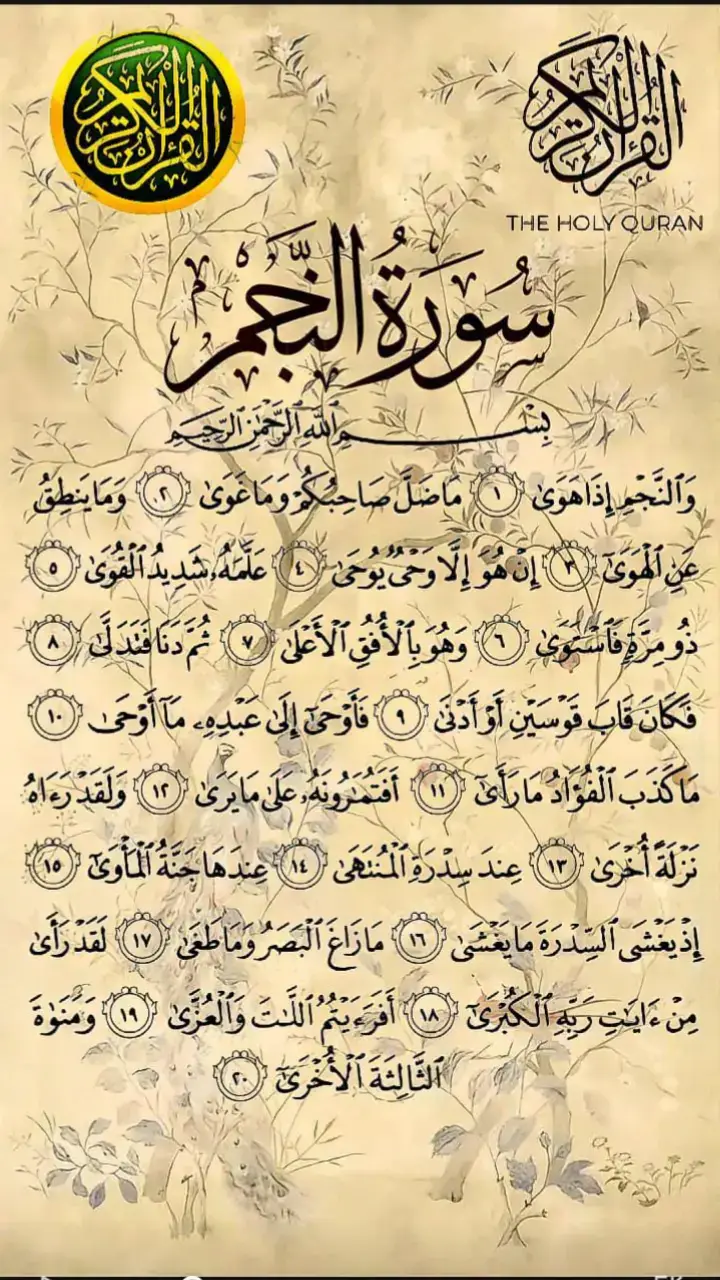 القرآن الكريم
القرآن الكريم
THE HOLY QURAN
سُورَةُ النَّجْمِ
بِسْمِ ٱللَّهِ ٱلرَّحْمَٰنِ ٱلرَّحِيمِ
وَٱلنَّجْمِ إِذَا هَوَىٰ ١ مَا ضَلَّ صَاحِبُكُمْ وَمَا غَوَىٰ ٢ وَمَا يَنطِقُ
عَنِ ٱلْهَوَىٰٓ ٣ إِنْ هُوَ إِلَّا وَحْىٌ يُوحَىٰ ٤ عَلَّمَهُۥ شَدِيدُ ٱلْقُوَىٰ ٥
ذُو مِرَّةٍ فَٱسْتَوَىٰ ٦ وَهُوَ بِٱلْأُفُقِ ٱلْأَعْلَىٰ ٧ ثُمَّ دَنَا فَتَدَلَّىٰ ٨
فَكَانَ قَابَ قَوْسَيْنِ أَوْ أَدْنَىٰ ٩ فَأَوْحَىٰٓ إِلَىٰ عَبْدِهِۦ مَآ أَوْحَىٰ ١٠
مَا كَذَبَ ٱلْفُؤَادُ مَا رَأَىٰٓ ١١ أَفَتُمَٰرُونَهُۥ عَلَىٰ مَا يَرَىٰ ١٢ وَلَقَدْ رَءَاهُ
نَزْلَةً أُخْرَىٰ ١٣ عِندَ سِدْرَةِ ٱلْمُنتَهَىٰ ١٤ عِندَهَا جَنَّةُ ٱلْمَأْوَىٰٓ ١٥
إِذْ يَغْشَى ٱلسِّدْرَةَ مَا يَغْشَىٰ ١٦ مَا زَاغَ ٱلْبَصَرُ وَمَا طَغَىٰ ١٧ لَقَدْ رَأَىٰ
مِنْ ءَايَٰتِ رَبِّهِ ٱلْكُبْرَىٰٓ ١٨ أَفَرَءَيْتُمُ ٱللَّٰتَ وَٱلْعُزَّىٰ ١٩ وَمَنَوٰةَ
ٱلثَّالِثَةَ ٱلْأُخْرَىٰٓ ٢٠